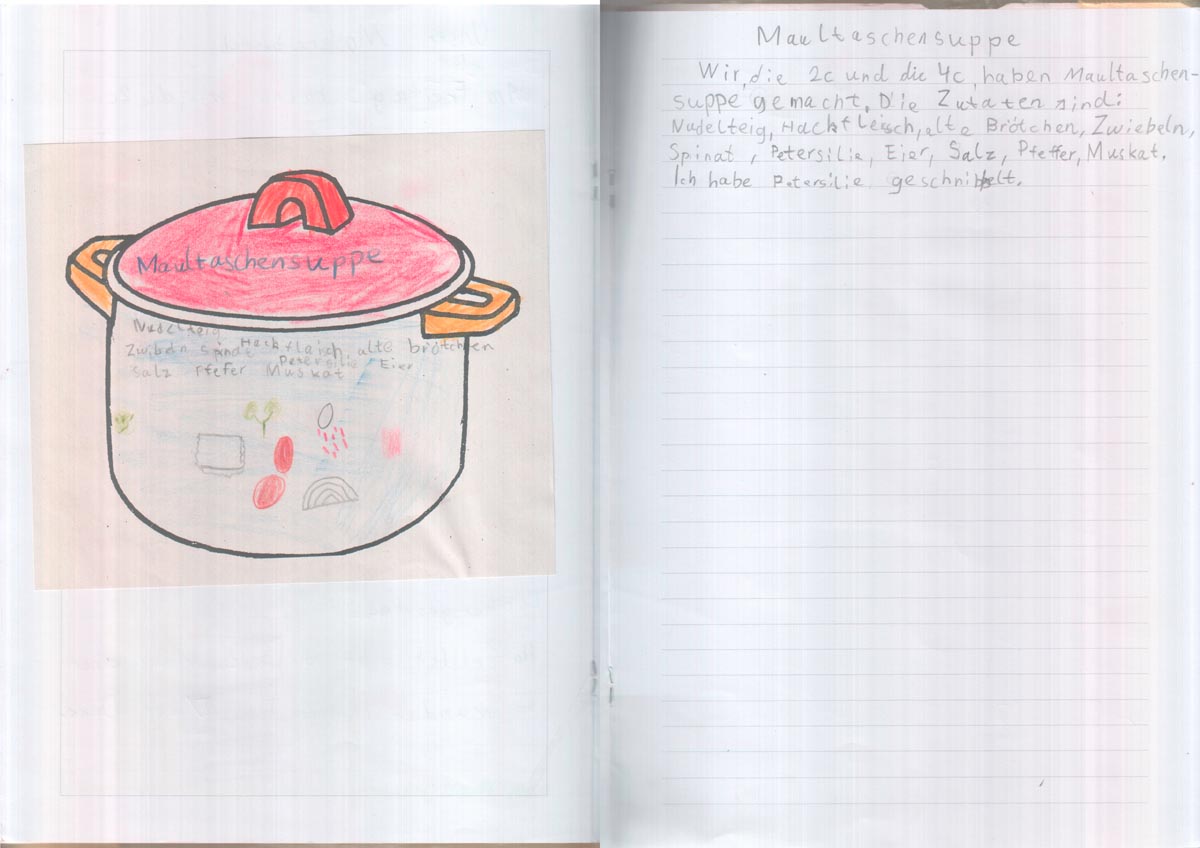 Maultaschensuppe
Nudelteig
Zwibeln Spinat Hackfleisch alte brötchen
Salz Pfefer Muskat Petersilie Eier
Maultaschensuppe
Wir, die 2c und die 4c, haben Maultaschen-
suppe gemacht. Die Zutaten sind:
Nudelteig, Hackfleisch, alte Brötchen, Zwiebeln,
Spinat, Petersilie, Eier, Salz, Pfeffer, Muskat.
Ich habe Petersilie geschnibbelt.